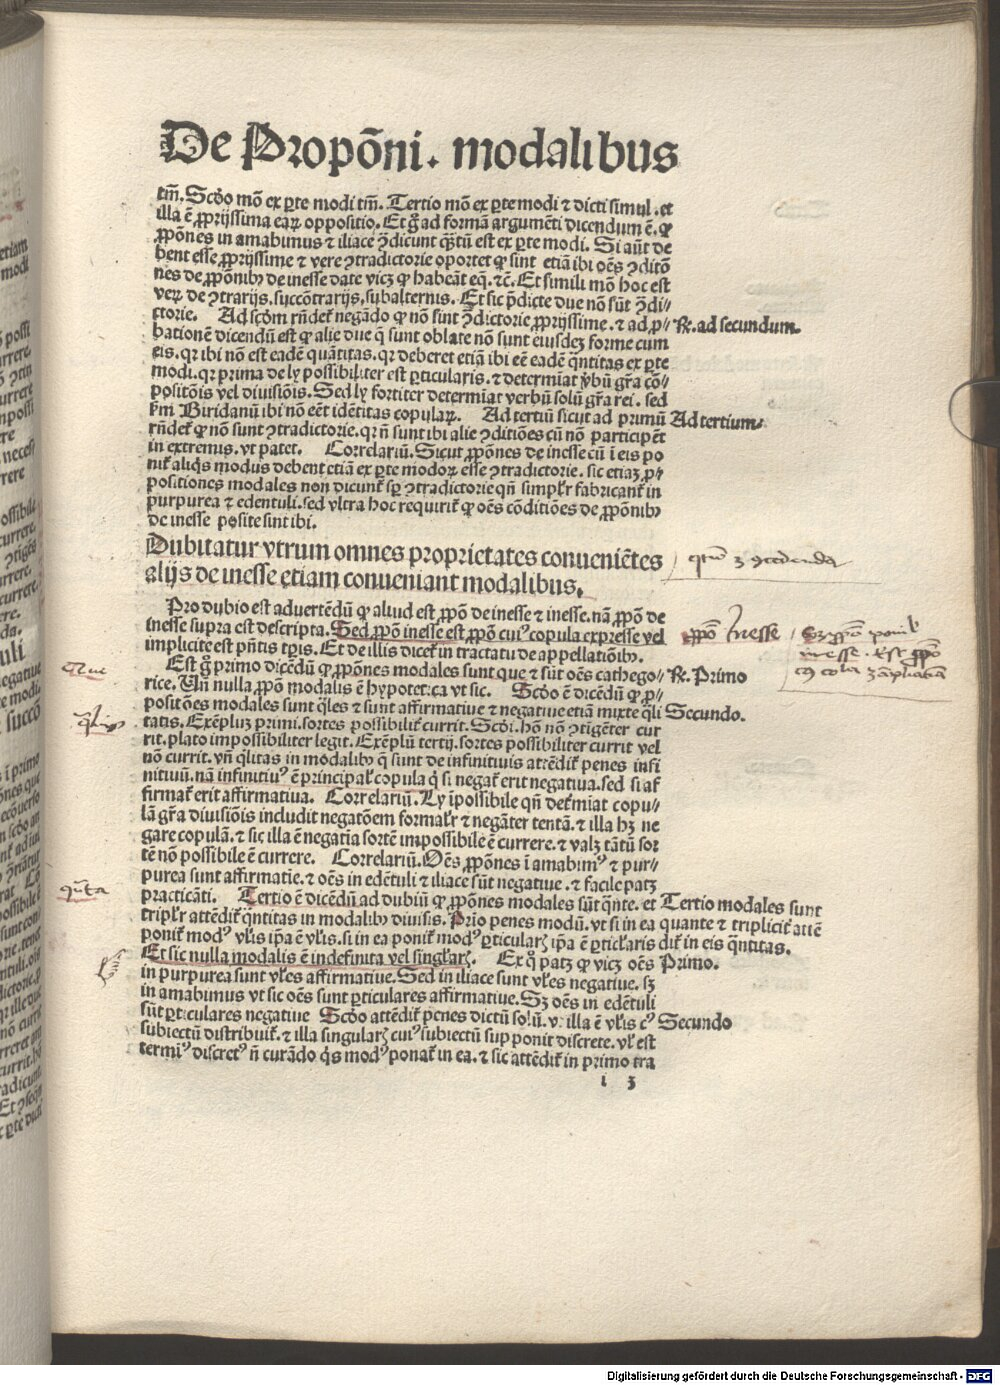 De Propõni. modalibus
tm̃. Scďo mõ ex ꝑte modi tm̃. Tertio mõ ex ꝑte modi ⁊ dicti simul. et
illa ẽ ꝓprijssima eaꝝ oppositio. Et g̊ ad formã argumẽti dicendum ẽ. ꝙ
ꝓpõnes in amabimus ⁊ iliace ꝯdicunt q̃tũ est ex ꝑte modi. Si aũt de
bent esse ꝓprijssime ⁊ vere ꝯtradictorie oportet ꝙ sint etiã ibi oẽs ꝯditõ
nes de ꝓpõnibꝫ de inesse date vicꝫ ꝙ habeãt eq̃. ⁊c̃. Et simili mõ hoc est
veꝝ de ꝯtrarijs, succõtrarijs, subalternis. Et sic p̃dicte due nõ sũt ꝯdi⸗
ctorie. Ad scďm rñdet̃ negãdo ꝙ nõ sint ꝯdictorie ꝓprijssime. ⁊ ad ꝓ⸗
R̃. ad secundum.
bationẽ dicendũ est ꝙ alie due q̃ sunt oblate nõ sunt eiusdeꝫ forme cum
eis. qꝛ ibi nõ est eadẽ quãtitas. qꝛ deberet etiã ibi eẽ eadẽ q̃ntitas ex ꝑte
modi. qꝛ prima de ly possibiliter est ꝑticularis. ⁊ determiat v̓bũ gr̃a cõ⸗
positiõis vel diuisiõis. Sed ly fortiter determiat verbũ solũ gr̃a rei. sed
km̃ Biridanũ ibi nõ eẽt idẽtitas copulaꝝ. Ad tertiũ sicut ad primũ
Ad tertium.
rñdet̃ ꝙ nõ sunt ꝯtradictorie. qꝛ ñ sunt ibi alie ꝯditiões cũ nõ participẽt
in extremis. vt patet. Correlariũ. Sicut ꝓpõnes de inesse cũ ĩ eis po
nit̃ aliq̃s modus debent etiã ex ꝑte modoꝝ esse ꝯtradictorie. sic etiaꝫ ꝓ⸗
positiones modales non dicunt̃ sp̃ ꝯtradictorie qñ simpl̃r fabricant̃ in
purpurea ⁊ edentuli. sed vltra hoc requirit̃ ꝙ oẽs cõditiões de ꝓpõnibꝫ
de inesse posite sint ibi.
Dubitatur vtrum omnes proprietates conueniẽtes
alijs de inesse etiam conueniant modalibus.
Pro dubio est aduertẽdũ ꝙ aliud est ꝓpõ de inesse ⁊ inesse. nã ꝓpõ de
inesse supra est descripta. Sed ꝓpõ inesse est ꝓpõ cui⁹ copula expresse vel
ꝓpõ Inesse
implicite est p̃ntis tp̃is. Et de illis dicet̃ in tractatu de appellatiõibꝫ.
Est g̊ primo dicẽdũ ꝙ ꝓpõnes modales sunt que ⁊ sũt oẽs cathego⸗
R̃. Primo
rice. Un̄ nulla ꝓpõ modalis ẽ hypotetica vt sic. Scďo ẽ dicẽdũ ꝙ ꝓ⸗
positões modales sunt q̃les ⁊ sunt affirmatiue ⁊ negatiue etiã mixte q̃li
Secundo.
tatis. Exẽpluꝫ primi. sortes possibilit̃ currit. Scďi. hõ nõ ꝯtigẽter cur
rit. plato impossibiliter legit. Exẽplũ tertij. sortes possibiliter currit vel
nõ currit. vñ q̃litas in modalibꝫ q̃ sunt de infinituis attẽdit̃ penes infi
nitiuũ. nã infinitiu⁹ ẽ principal̃ copula q̃ si negat̃ erit negatiua. sed si af
firmat̃ erit affirmatiua. Correlariũ. Ly ĩpossibile qñ det̃miat copu⸗
lã gr̃a diuisiõis includit negatõem formal̃r ⁊ negãter tentã. ⁊ illa hꝫ ne
gare copulã. ⁊ sic illa ẽ negatia sortẽ impossibile ẽ currere. ⁊ valꝫ tãtũ sor
tẽ nõ possibile ẽ currere. Correlariũ. Oẽs ꝓpõnes ĩ amabim⁹ ⁊ pur⸗
purea sunt affirmatie. ⁊ oẽs in edẽtuli ⁊ iliace sũt negatiue. ⁊ facile patꝫ
practicãti. Tertio ẽ dicẽdũ ad dubiũ ꝙ ꝓpõnes modales sũt q̃nte. et
Tertio modales sunt
tripl̃r attẽdit̃ q̃ntitas in modalibꝫ diuisis. Prio penes modũ. vt si in ea
quante ⁊ tripliciť attẽ
ponit̃ mod⁹ vl̃is ip̃a ẽ vl̃is. si in ea ponit̃ mod⁹ ꝑticularꝭ ip̃a ẽ ꝑticl̃aris
dit̃ in eis q̃ntitas.
Et sic nulla modalis ẽ indefinita vel singl̃arꝭ. Ex q̊ patꝫ ꝙ vicꝫ oẽs
Primo.
in purpurea sunt vl̃es affirmatiue. Sed in iliace sunt vl̃es negatiue. sꝫ
in amabimus vt sic oẽs sunt ꝑticulares affirmatiue. Sꝫ oẽs in edẽtuli
sũt ꝑticulares negatiue Scďo attẽdit̃ penes dictũ solũ. vñ illa ẽ vl̃is c⁹
Secundo
subiectũ distribuit̃. ⁊ illa singularꝭ cui⁹ subiectũ supponit discrete. vl̃ est
termi⁹ discret⁹ ñ curãdo q̃s mod⁹ ponat̃ in ea. ⁊ sic attẽdit̃ in primo tra
i 3
Digitalisierung gefördert durch die Deutsche Forschungsgemeinschaft - DFG